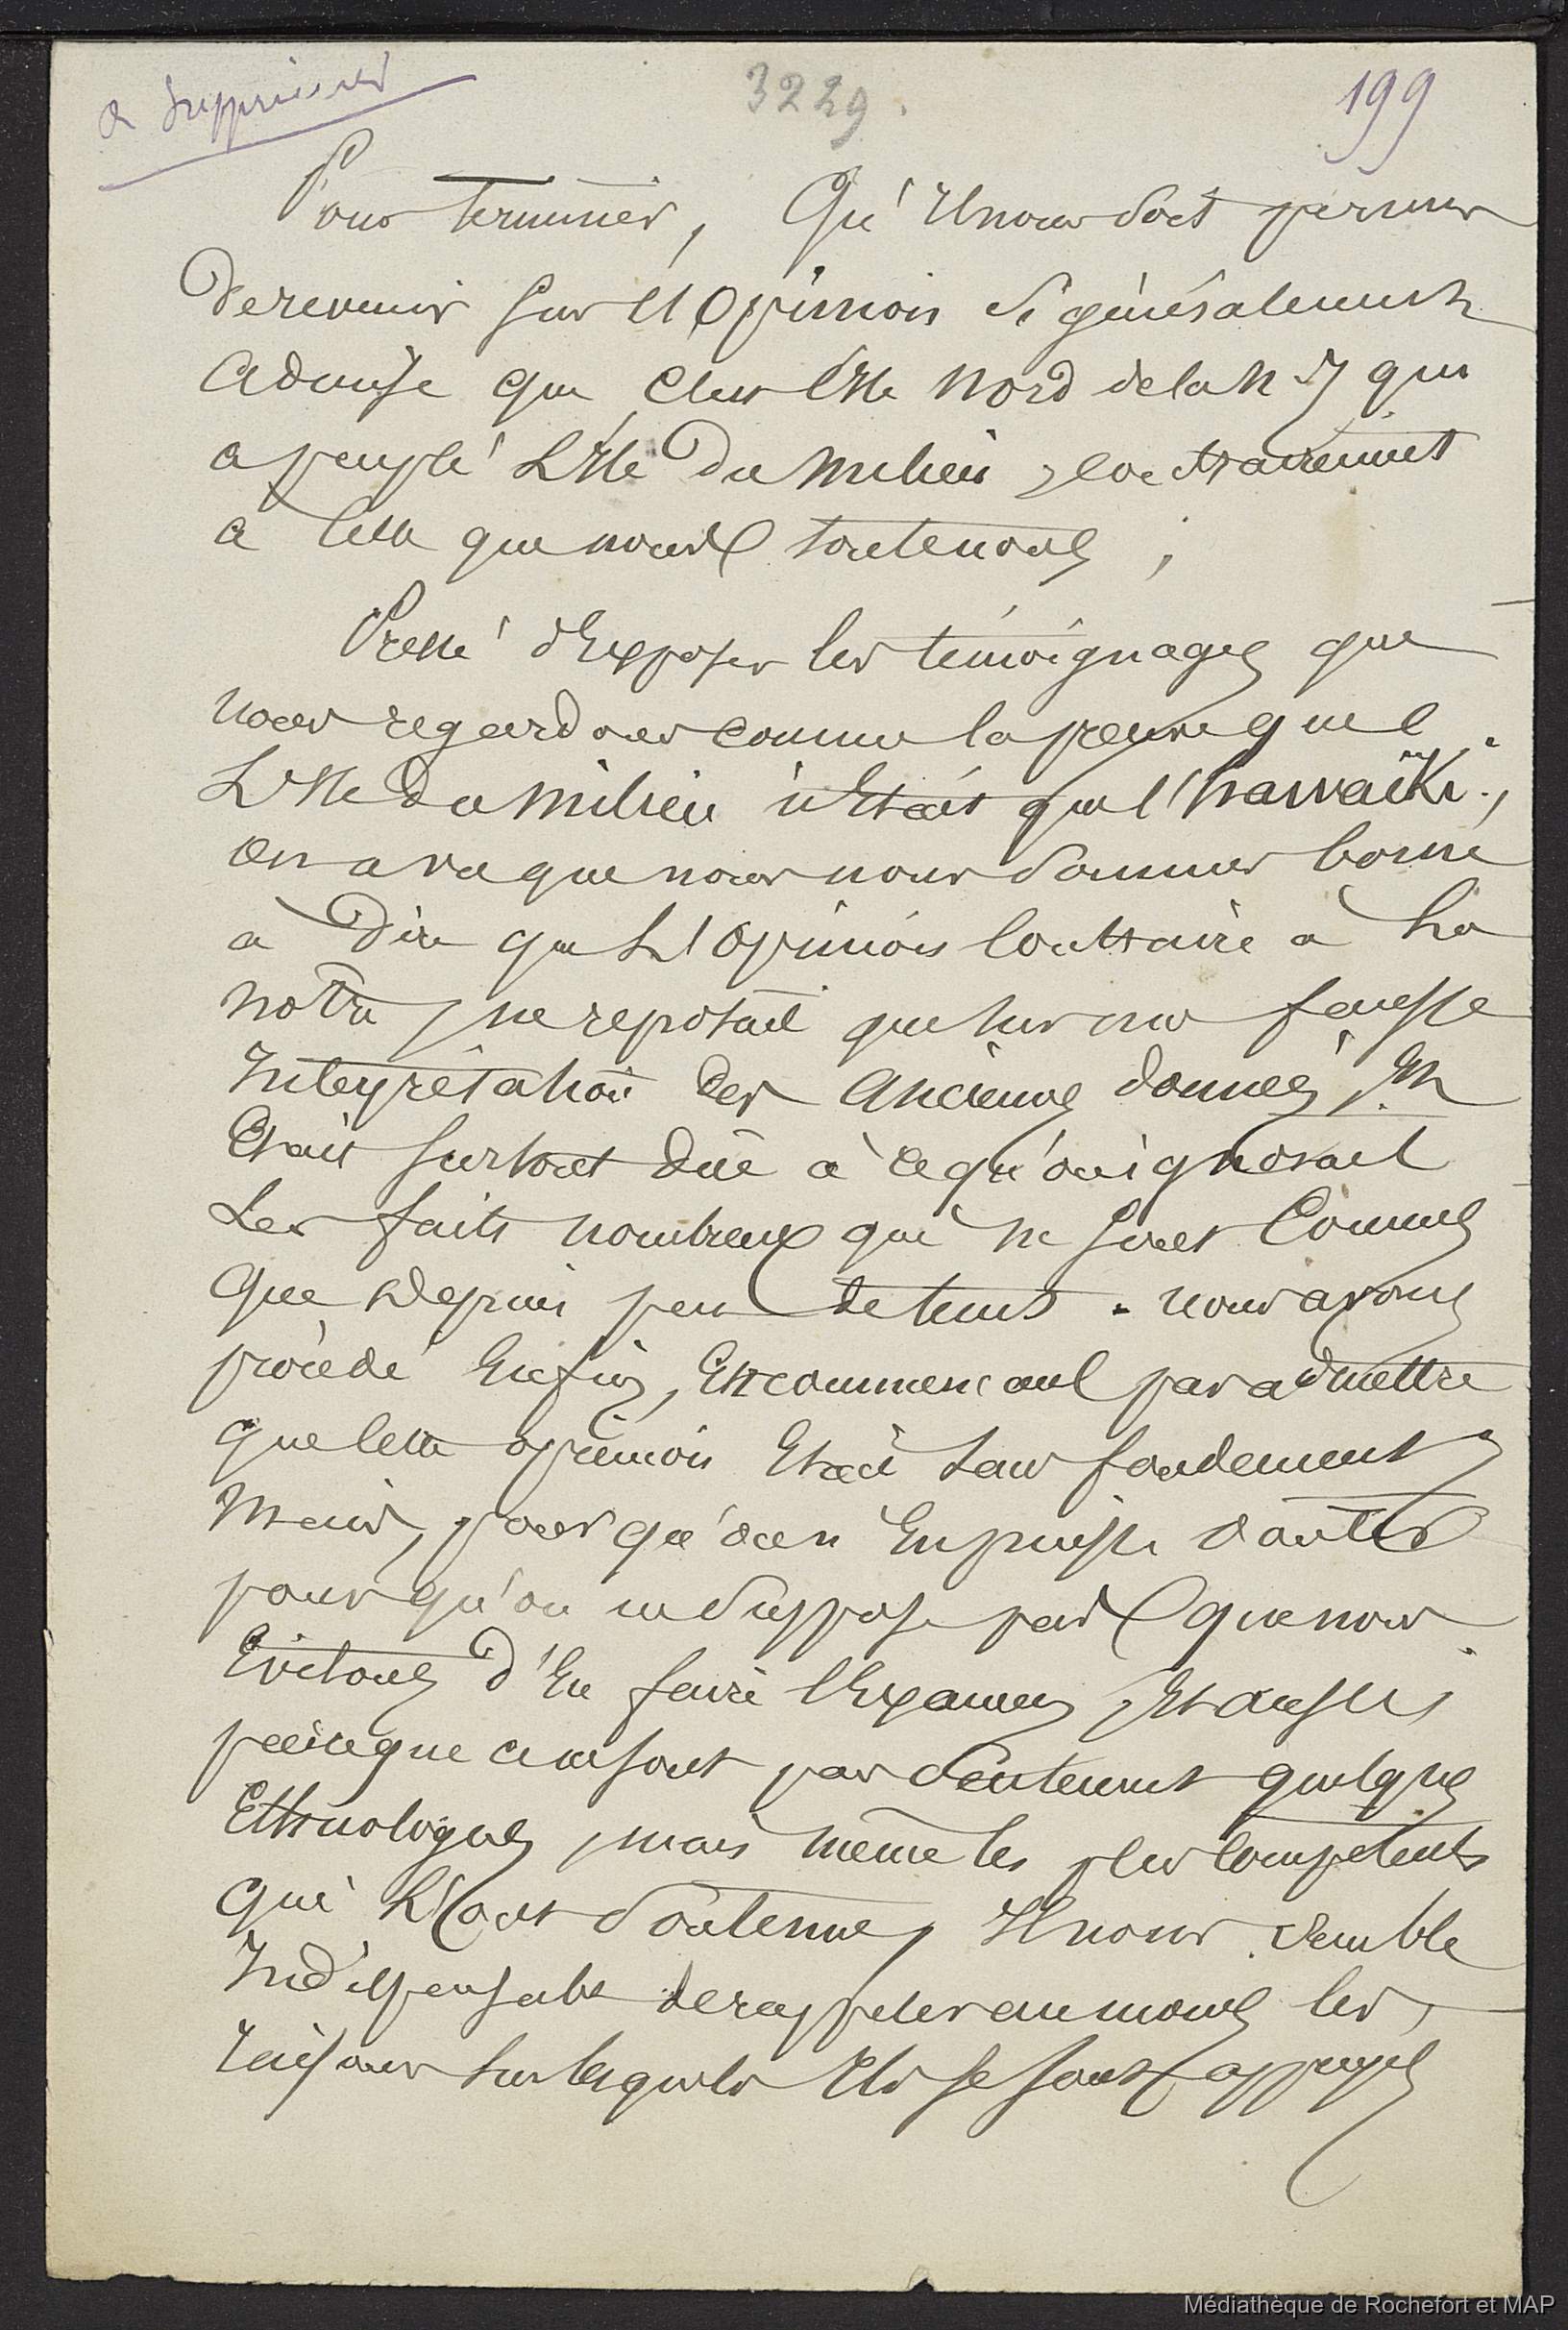 a supprimer
3229.
199
Pour terminer, Qu'il nous soit permis
de revenir sur l'Opinion si généralement
admise que c'est l'Ile Nord de la N. Z qui
a peuplé L'Ile du Milieu, contrairement
a celle que nous soutenons ;
Pressé d'Exposer les témoignages que
nous regardons comme la preuve que
L'Ile du Milieu n'Etait que l'hawaïki,
on a vu que nous nous sommes borné
a dire que L'Opinion contraire à La
notre, ne reposait que sur une fausse
Interprétation des anciennes données, Et
Etait surtout düe à ce qu'on ignorait
Les faits nombreux qui ne sont connus
que depuis peu de tems. nous avons
procédé Enfin, En commencant par admettre
que cette opinion Etait sans fondement
Mais, pour qu'on En puisse douter
pour qu'on ne suppose pas que nous
Evitons d'En faire l'Examen, Et aussi
parce que ce ne sont pas seulement quelques
Ethnologues, mais même les plus compétents
qui L'ont soutenue, Il nous semble
Indispensable de rappeler au moins les
raisons sur lesquels Ils se sont appuyés
Médiathèque de Rochefort et MAP